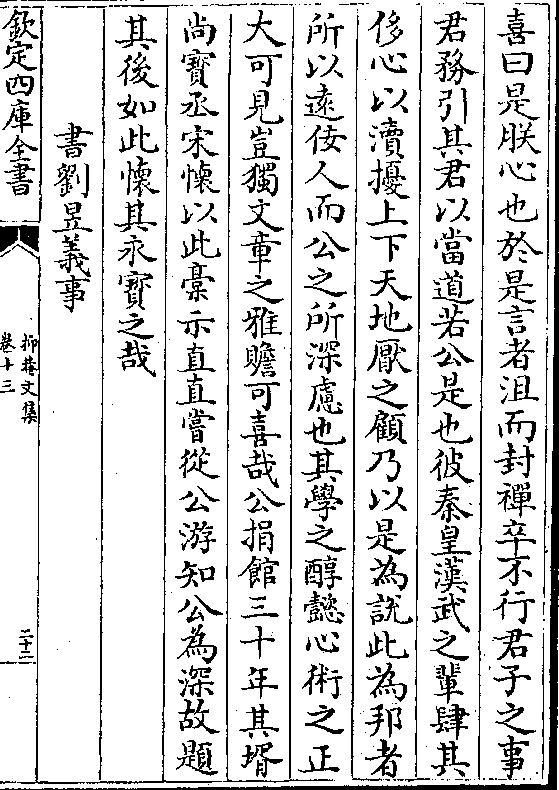 喜曰是朕心也於是言者沮而封禪卒不行君子之事
君務引其君以當道若公是也彼秦皇漢武之輩肆其
侈心以瀆擾上下天地厭之顧乃以是為說此為邦者
所以遠佞人而公之所深慮也其學之醇懿心術之正
大可見豈獨文章之雅贍可喜哉公捐館三十年其壻
尚寶丞宋懐以此藁示直直嘗從公游知公為深故題
其後如此懐其永寶之哉
書劉昱義事
欽定四庫全書
抑菴文集
卷十三
二十二